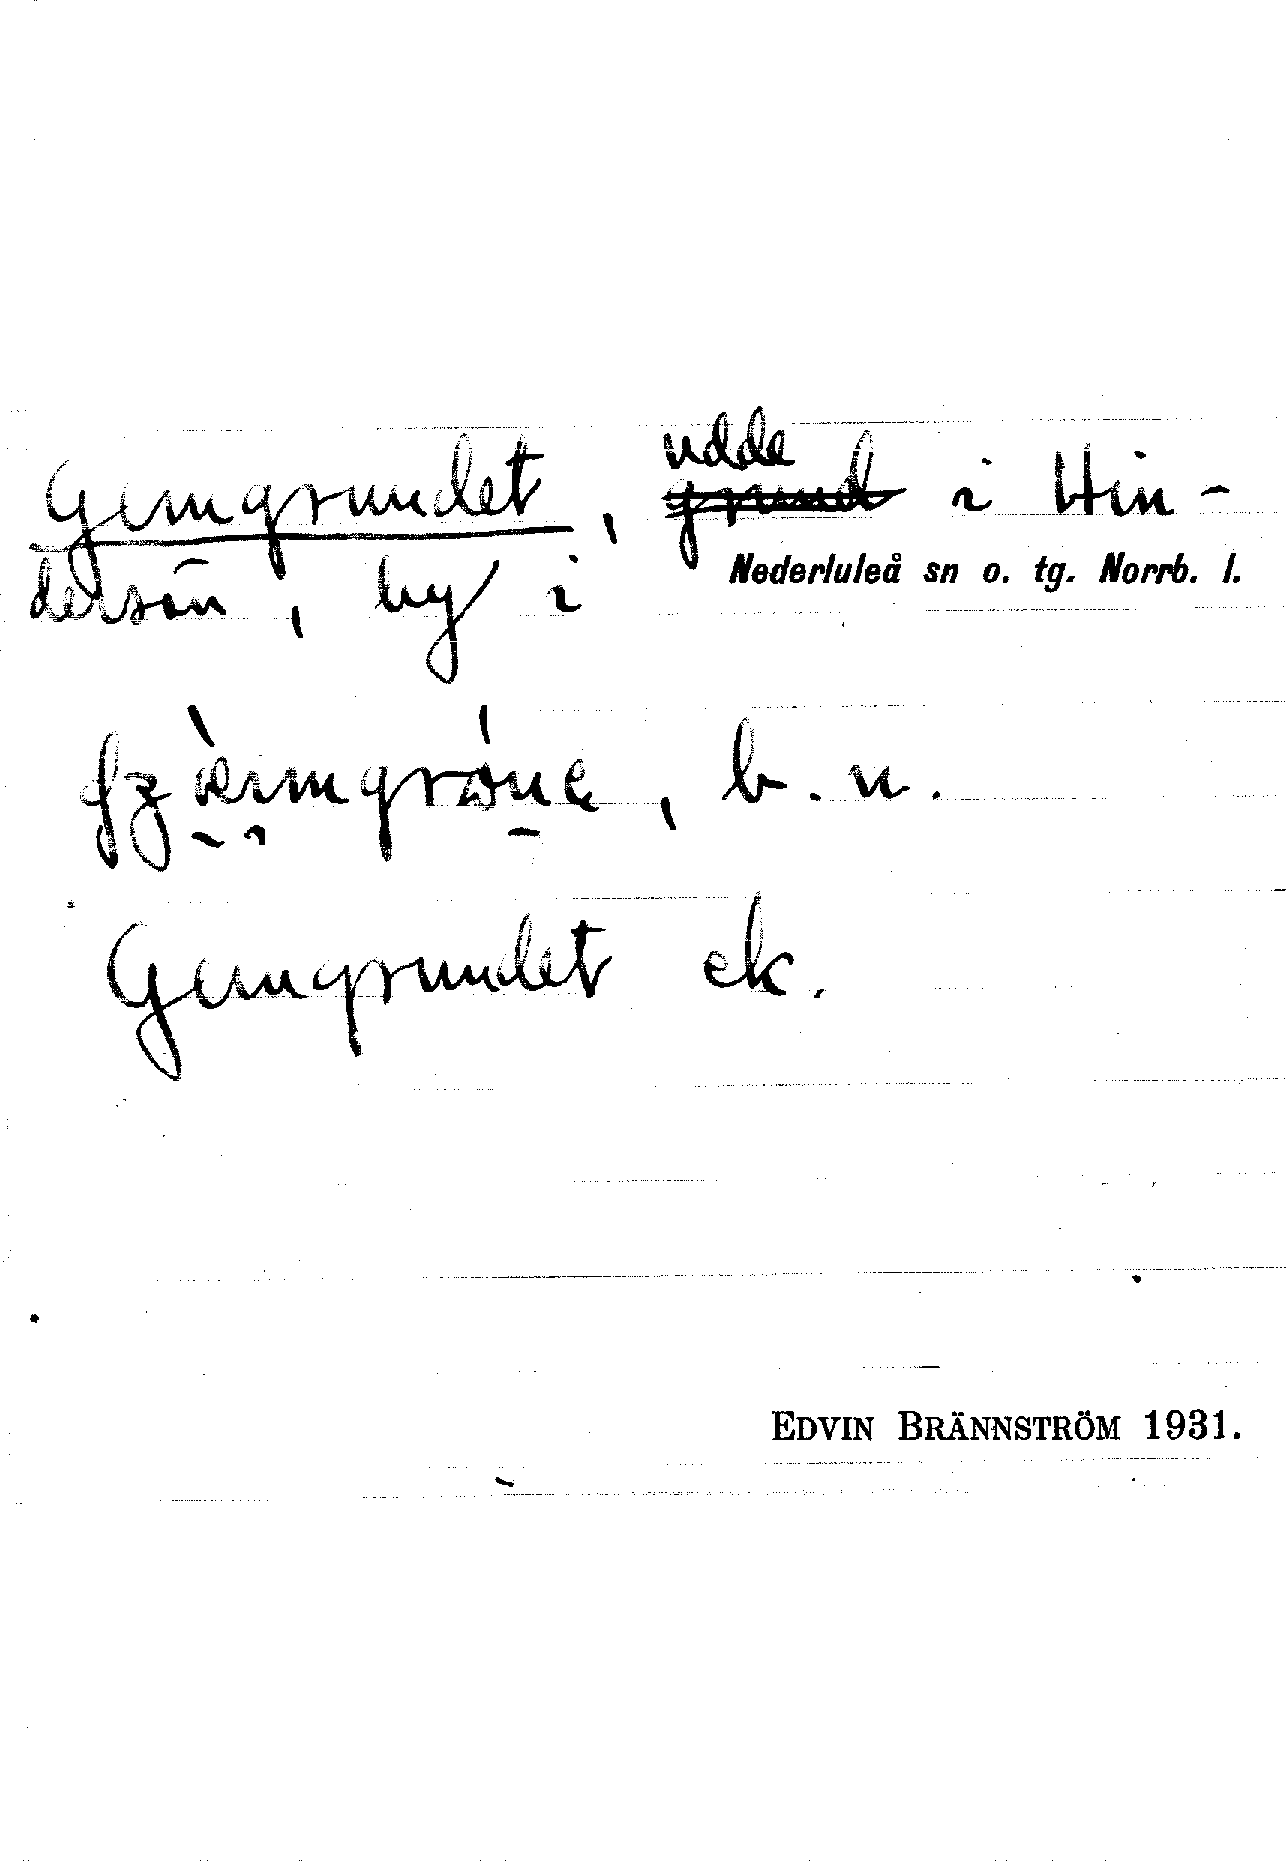 Germgrundet, udde i Hin-
dersön, by i Nederluleå sn o. tg. Norrb. l.
b. n.
Germgrundet ek.
EDVIN BRÄNNSTRÖM 1931.